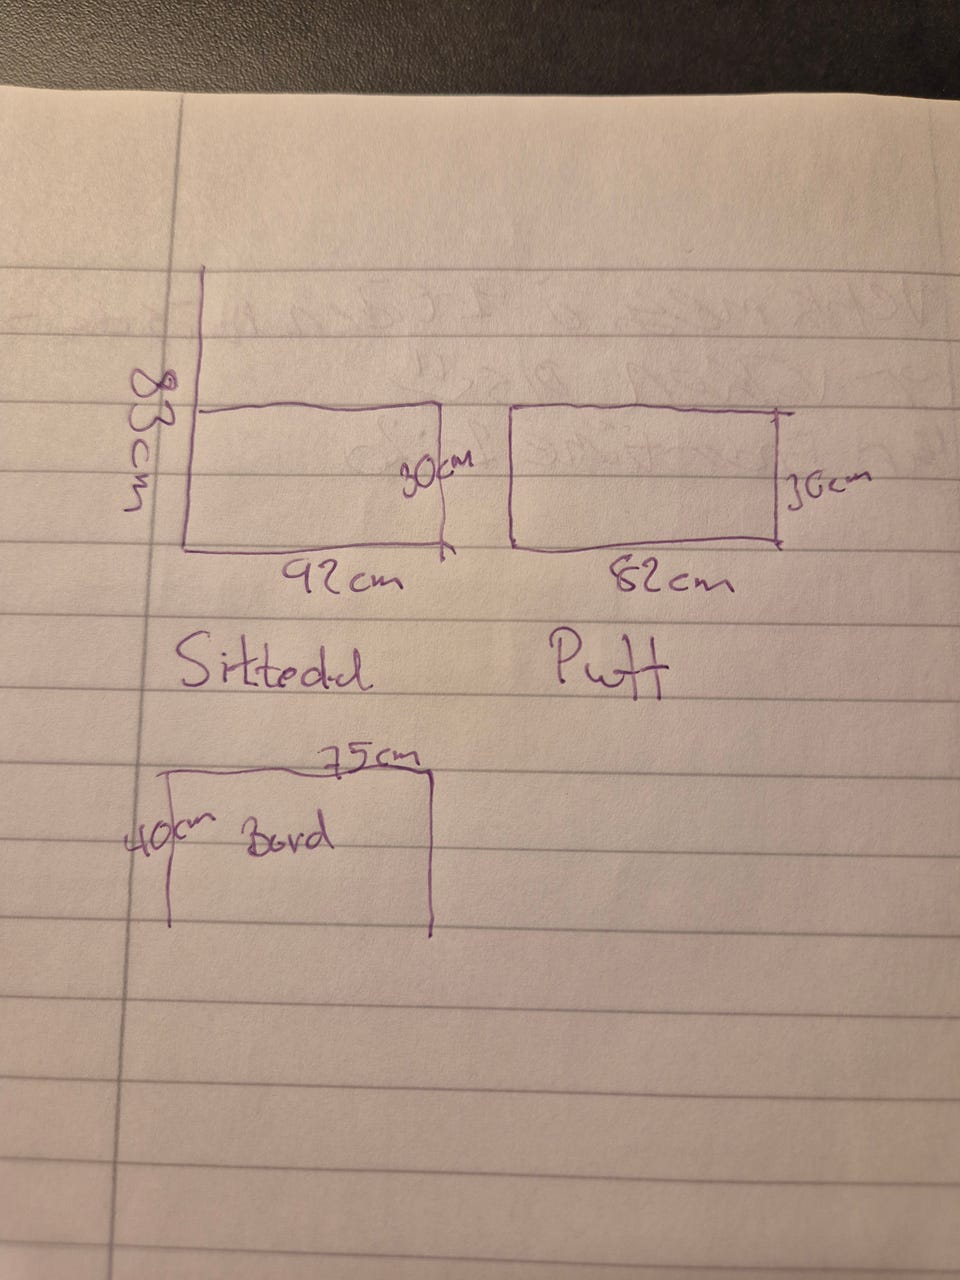 83cm
30cm
30cm
92cm
82cm
Sittedel
Puff
75cm
40cm
Bord